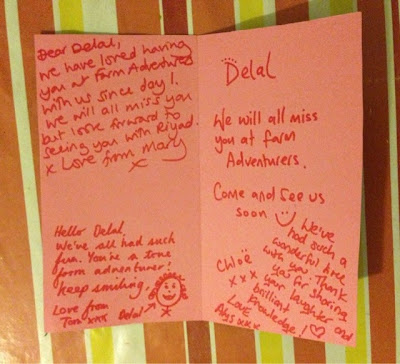 Dear Delal,
we have loved having
you at Farm Adventures
with us since day 1.
we will all miss you
but look forward to
seeing you with Riyad.
x Love from Mary
x
Hello Delal,
We've all had such
fun. You're a true
farm adventurer!
Keep smiling,
Love from
Tom xxx Delal
Delal
We will all miss
you at farm
Adventurers.
Come and see us
soon
Chloë
x x x
We've
had such a
wonderful time
with you. Thank
you for sharing
your laughter and
brilliant
knowledge!
Love
Alys xxx